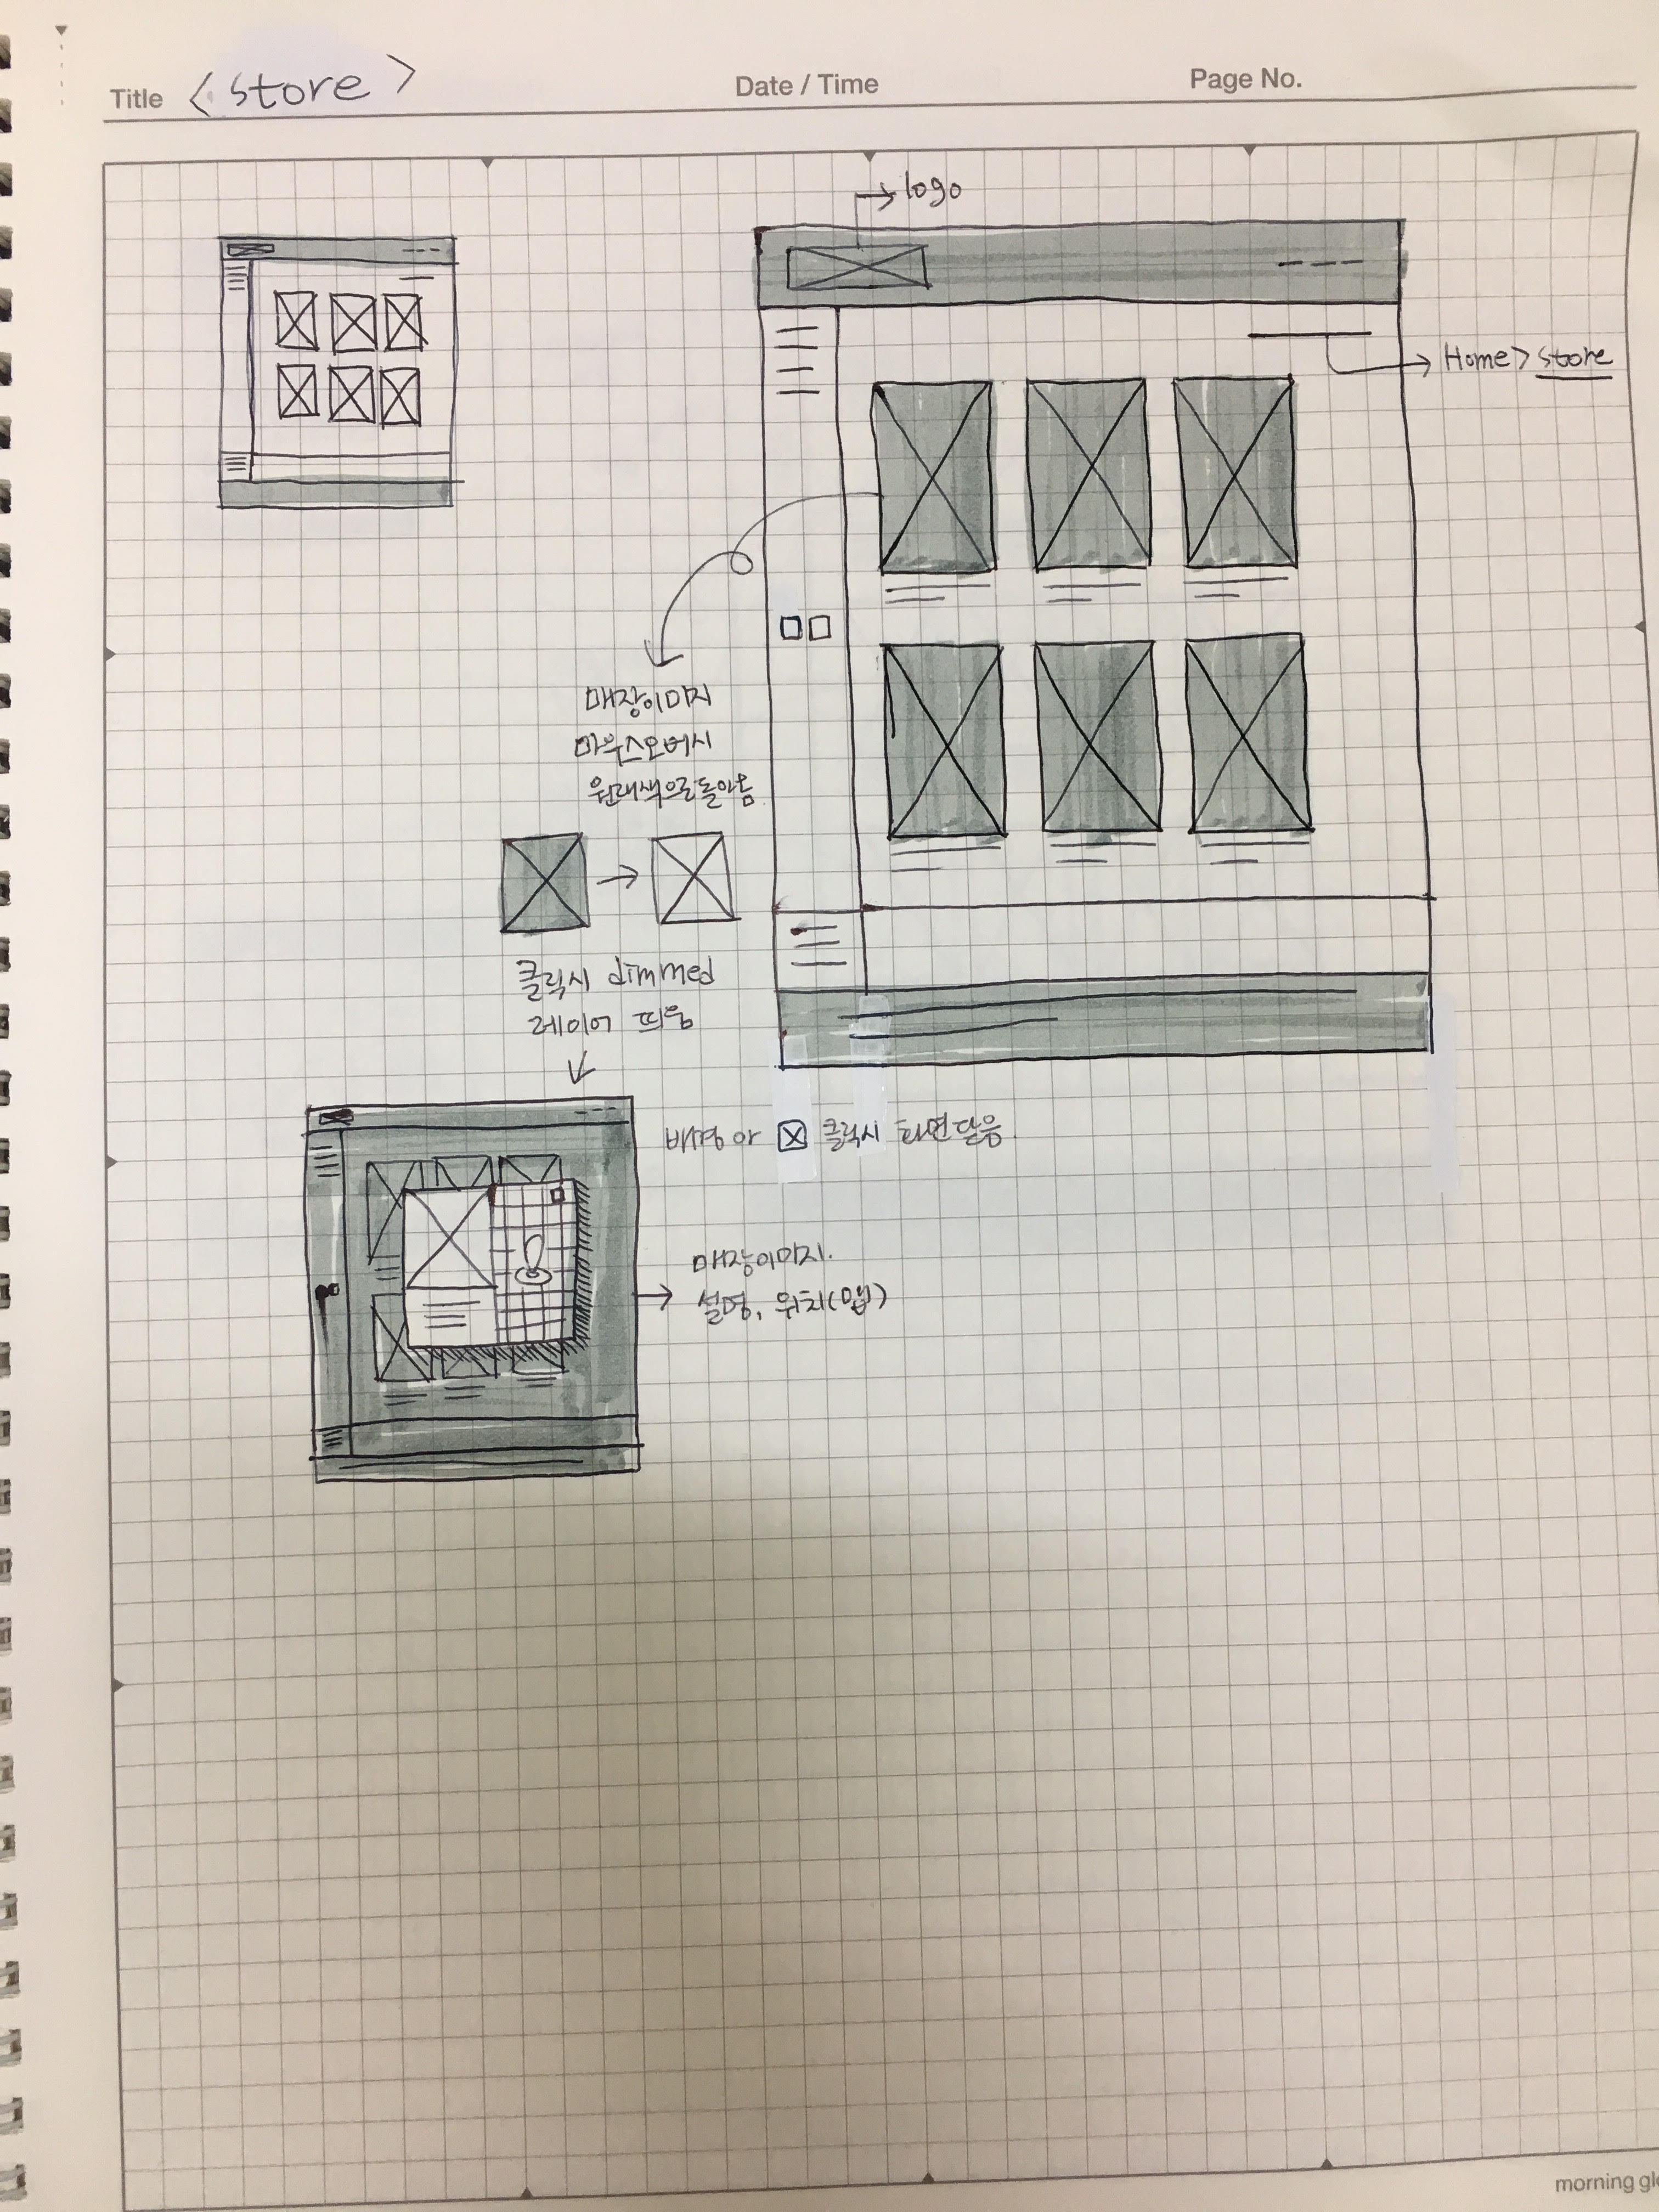 Title <store>
Date / Time
Page No.
logo
Home> store
매장이미지
마우스오버시
원래색으로돌아옴
클릭시 dimmed
레이어 띄움
배경 or ☒ 클릭시 화면닫음.
매장이미지.
설명, 위치(맵)
morning glo